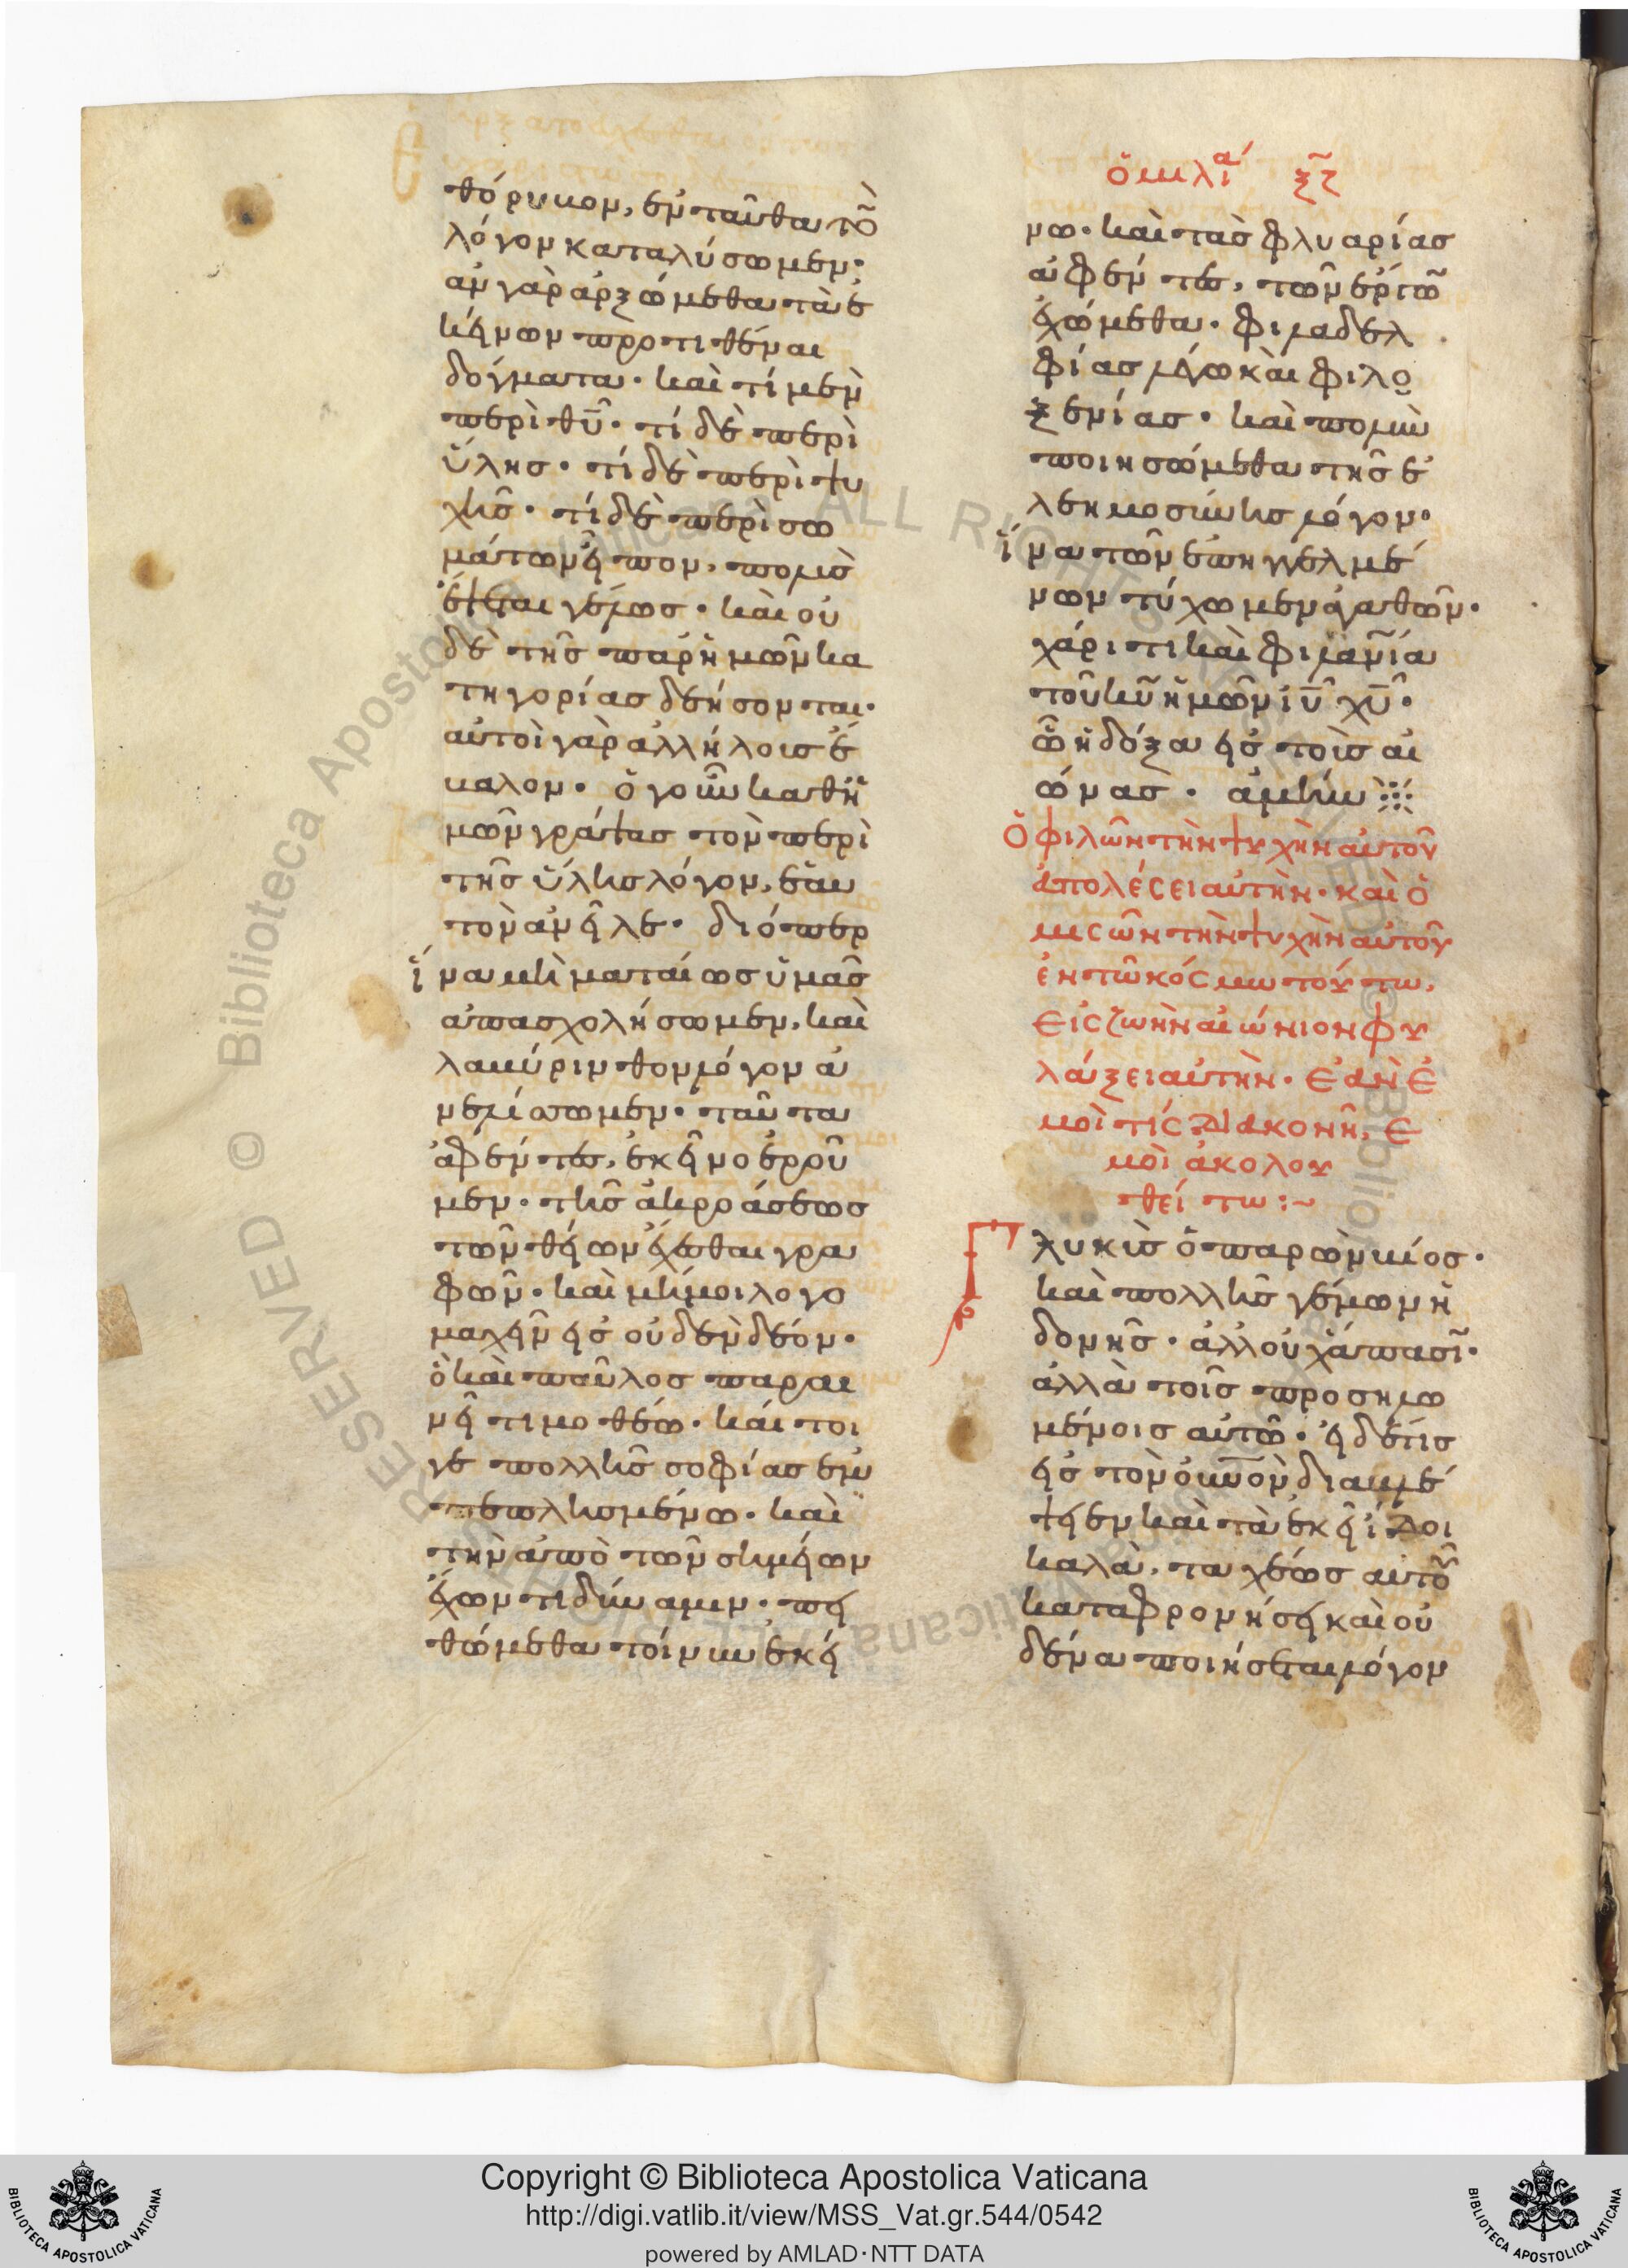 θόρυβον, ἐνταῦθα τὸ̃
λόγον καταλύσωμεν·
ἂν γὰρ ἀρξώμεθα τὰ ἐ
κείνων προτιθέναι
δόγματα· καὶ τί μὲν
περὶ θῡ· τί δὲ περὶ
ὕλησ· τί δὲ περὶ ψυ
χῆσ· τί δὲ περὶ σω
μάτων εἶπον, πολὺσ
ἕψεται γέλωσ· καὶ οὐ
δὲ τῆσ παρ' ἡμῶν κα
τηγορίασ δεήσονται·
αὐτοὶ γὰρ ἀλλήλοισ ἔ
βαλον· ὁ γοῦν καθ' ἡ
μῶν γράψασ τὸν περὶ
τῆσ ὕλησ λόγον, ἑαυ
τὸν ἀνεῖλε· διόπερ
ἵνα μὴ ματαίωσ ὑμᾶσ
ἀπασχολήσωμεν, καὶ
λαβύρινθον λόγον ἀ
νελίττωμεν· ταῦτα
ἀφέντεσ, ἐκεῖνο ἐροῦ
μεν· τῆσ ἀκροάσεωσ
τῶν θείων ἔχεσθαι γρα
φῶν· καὶ μὴ μοι λογο
μαχεῖν εἰσ οὐδὲν δέον·
ὃ καὶ παῦλοσ παραι
νεῖ τιμοθέω· καίτοι
γε πολλῆσ σοφίασ ἐμ
πεπλησμένω· καὶ
τὴν ἀπὸ τῶν σημείων
ἔχοντι δύναμιν· πει
θώμεθα τοίνυν ἐκεί
ὁμιλία ξζ
νω· καὶ τὰσ φλυαρίασ
ἀφέντεσ, τῶν ἔργων
ἐχώμεθα· φιλαδελ
φίασ λέγω καὶ φιλο
ξενίασ· καὶ πολὺν
ποιησώμεθα τῆσ ἐ
λεημοσύνησ λόγον·
ἵνα τῶν ἐπηγγελμέ
νων τύχωμεν ἀγαθῶν·
χάριτι καὶ φιλαν̅ία
τοῦ κῡ ἡμῶν ῑῡ χῡ·
ὧ ἡ δόξα εἰσ τοὺσ αἰ
ώνασ· ἀμήν
Ὁ φιλῶν τὴν ψυχὴν αὐτοῦ
ἀπολέσει αὐτήν· καὶ ὁ
μισῶν τὴν ψυχὴν αὐτοῦ
ἐν τῶ κόσμω τούτω,
εἰς ζωὴν αἰώνιον φυ
λάξει αὐτήν· Ἐὰν ἐ
μοί τις διακονῆ, ἐ
μοὶ ἀκολου
θείτω :~
Γλυκὺσ ὁ παρὼν βίοσ·
καὶ πολλῆσ γέμων ἡ
δονῆσ· ἀλλ' οὐχ ἅπασι̃·
ἀλλὰ τοῖσ προσηλω
μένοισ αὐτῶ· εἰ δέ τισ
εἰσ τὸν οὐν̅ον διαβλέ
ψειεν καὶ τὰ ἐκεῖ ἴδοι
καλὰ, ταχέωσ αὐτοῦ
καταφρονήσει καὶ οὐ
δένα ποιήσεται λόγον
Copyright © Biblioteca Apostolica Vaticana
http://digi.vatlib.it/view/MSS_Vat.gr.544/0542
powered by AMLAD·NTT DATA